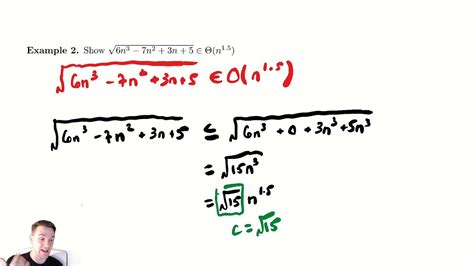 Example 2. Show √(6n³ − 7n² + 3n + 5) ∈ Θ(n^1.5)
√(6n³ − 7n² + 3n + 5) ∈ O(n^1.5)
√(6n³ − 7n² + 3n + 5) ≤ √(6n³ + 0 + 3n³ + 5n³)
= √(15n³)
= √15 n^1.5
c = √15